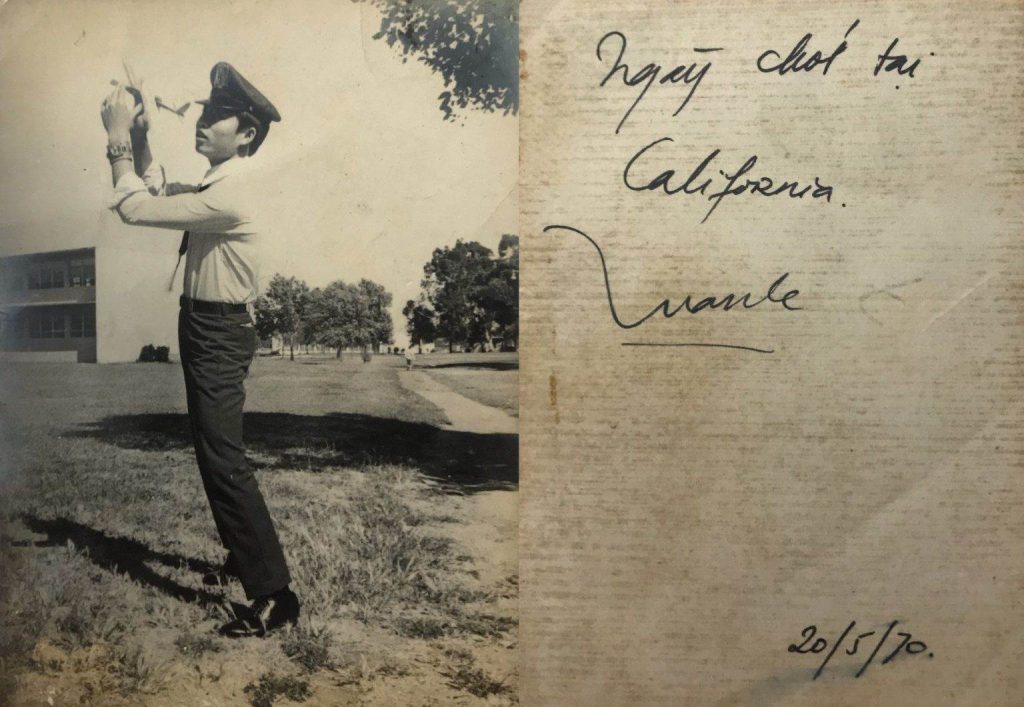 Ngày chơi tại
California.
20/5/70.